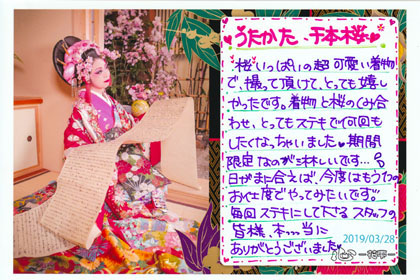 うたかた、千本桜
桜いっぱいの超可愛い着物
で、撮って頂けて、とっても嬉し
かったです。着物と桜のくみ合
わせ、とってもステキで何回も
したくなっちゃいました♥期間
限定なのが淋しいです…。
日がまに合えば、今度はもう1つの
お仕度でやってみたいです!!
毎回ステキにして下さるスタッフの
皆様、本当に
ありがとうございました♥
2019/03/28